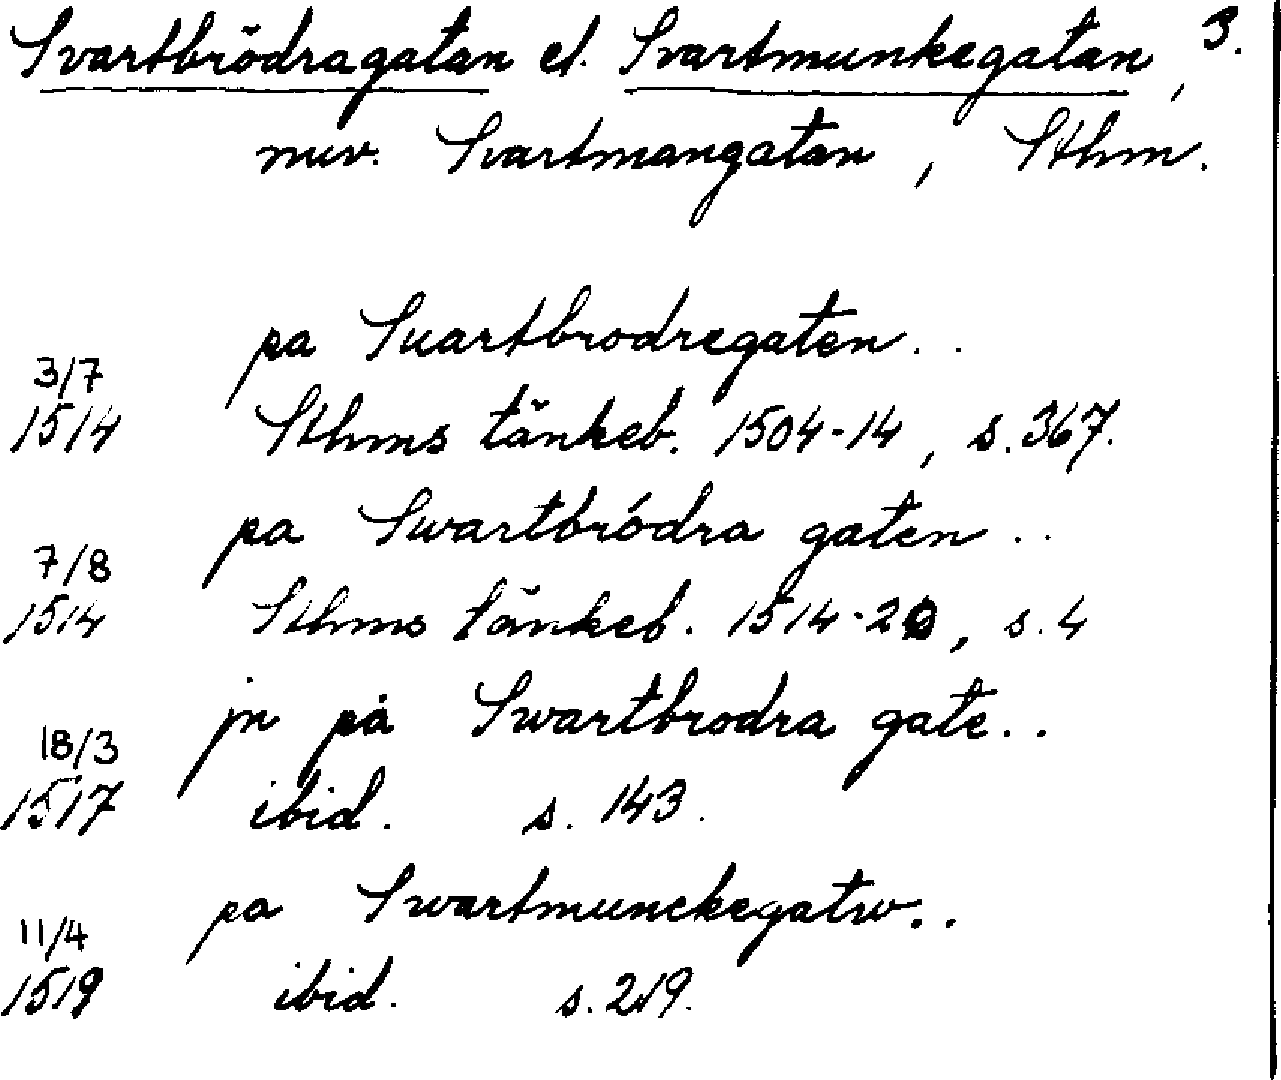 Svartbrödragatan el. Svartmunkegatan, 3.
nuv. Svartmangatan, Sthm.
pa Suartbrodregaten..
3/7
1514 Sthms tänkeb. 1504-14, s. 367.
pa Swartbródra gaten..
7/8
1514 Sthms tänkeb. 1514-20, s. 4
jn på Swartbrodra gate..
18/3
1517 ibid. s. 143.
pa Swartmunckegatw..
11/4
1519 ibid. s. 219.